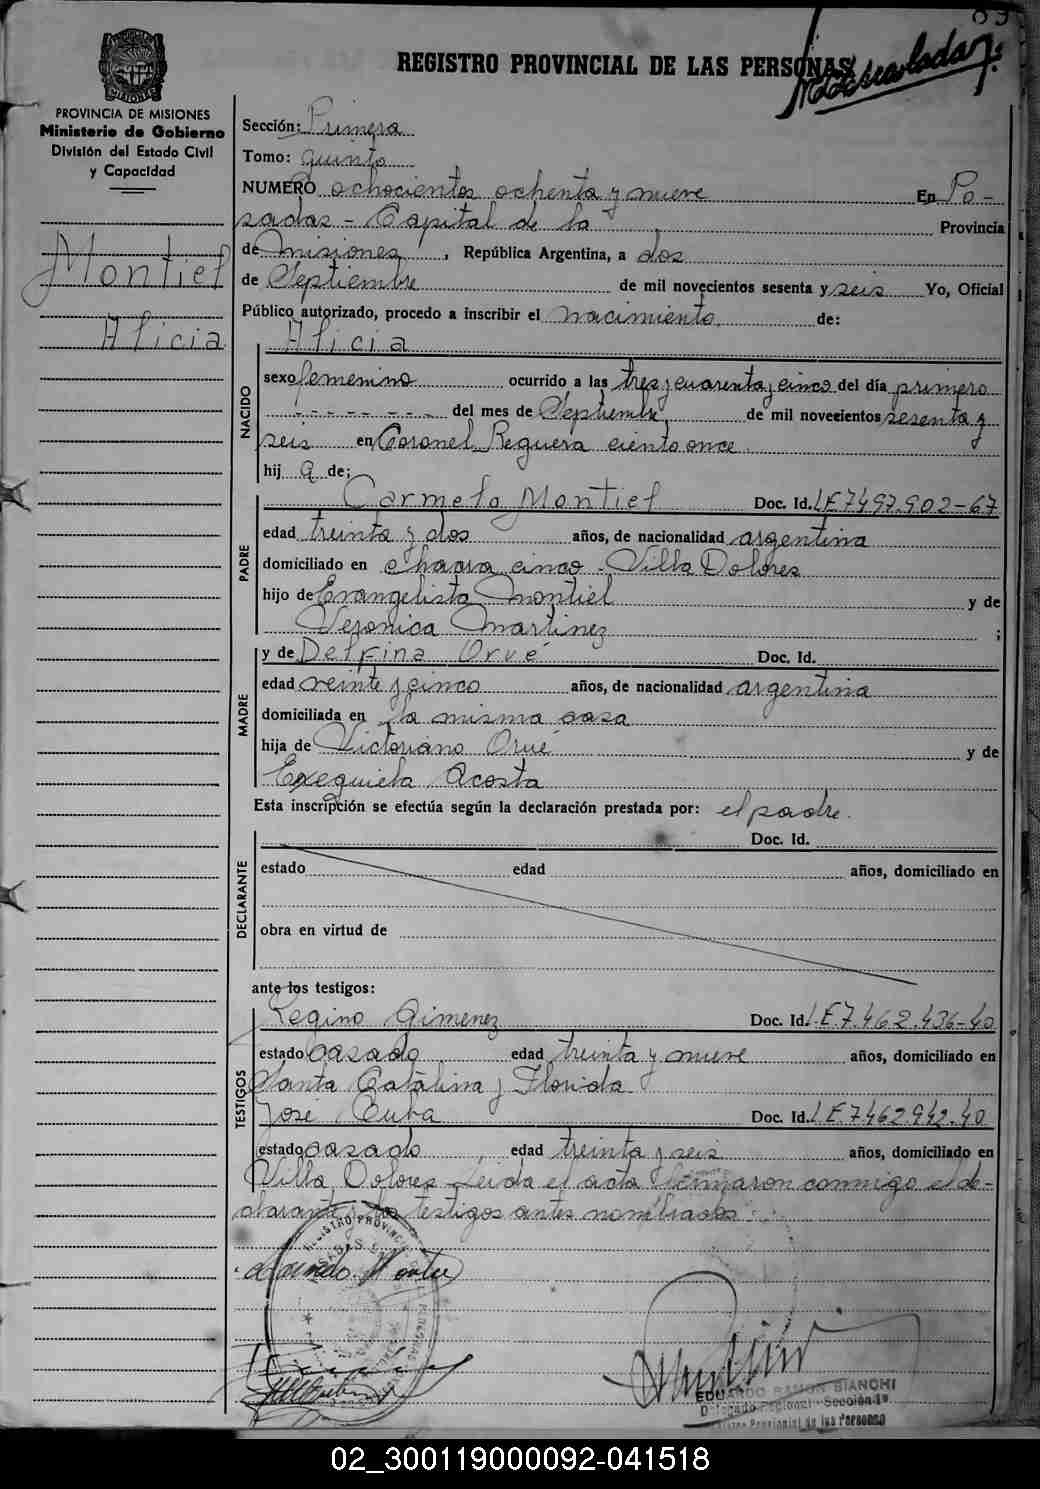 REGISTRO PROVINCIAL DE LAS PERSONAS
PROVINCIA DE MISIONES
Ministerio de Gobierno
División del Estado Civil
y Capacidad
Montiel
Alicia
Sección: Primera
Tomo: quinto
NUMERO ochocientos ochenta y nueve En Po-
sadas - Capital de la Provincia
de Misiones, República Argentina, a dos
de Septiembre de mil novecientos sesenta y seis Yo, Oficial
Público autorizado, procedo a inscribir el nacimiento de:
NACIDO
Alicia
sexo femenino ocurrido a las tres y cuarenta y cinco del día primero
del mes de Septiembre de mil novecientos sesenta y
seis en Coronel Reguera ciento once.
hij a de:
PADRE
Carmelo Montiel Doc. Id. LE 7497.902-67
edad treinta y dos años, de nacionalidad argentina
domiciliado en chacra cinco - Villa Dolores
hijo de Evangelista Montiel y de
Veronica Martinez ;
MADRE
y de Delfina Orué Doc. Id.
edad veinte y cinco años, de nacionalidad argentina
domiciliada en la misma casa
hija de Victoriano Orué y de
Exequiela Acosta
Esta inscripción se efectúa según la declaración prestada por: el padre.
DECLARANTE
Doc. Id.
estado edad años, domiciliado en
obra en virtud de
ante los testigos:
TESTIGOS
Regino Gimenez Doc. Id. LE 7.462.436-40
estado casado edad treinta y nueve años, domiciliado en
Santa Catalina y Florida
José Cuba Doc. Id. LE 7462.942.40
estado casado edad treinta y seis años, domiciliado en
Villa Dolores Leida el acta firmaron conmigo el de-
clarante y los testigos antes nombrados.
EDUARDO RAMON BIANCHI
Delegado Regional - Sección 1ª
Registro Provincial de las Personas
02_300119000092-041518